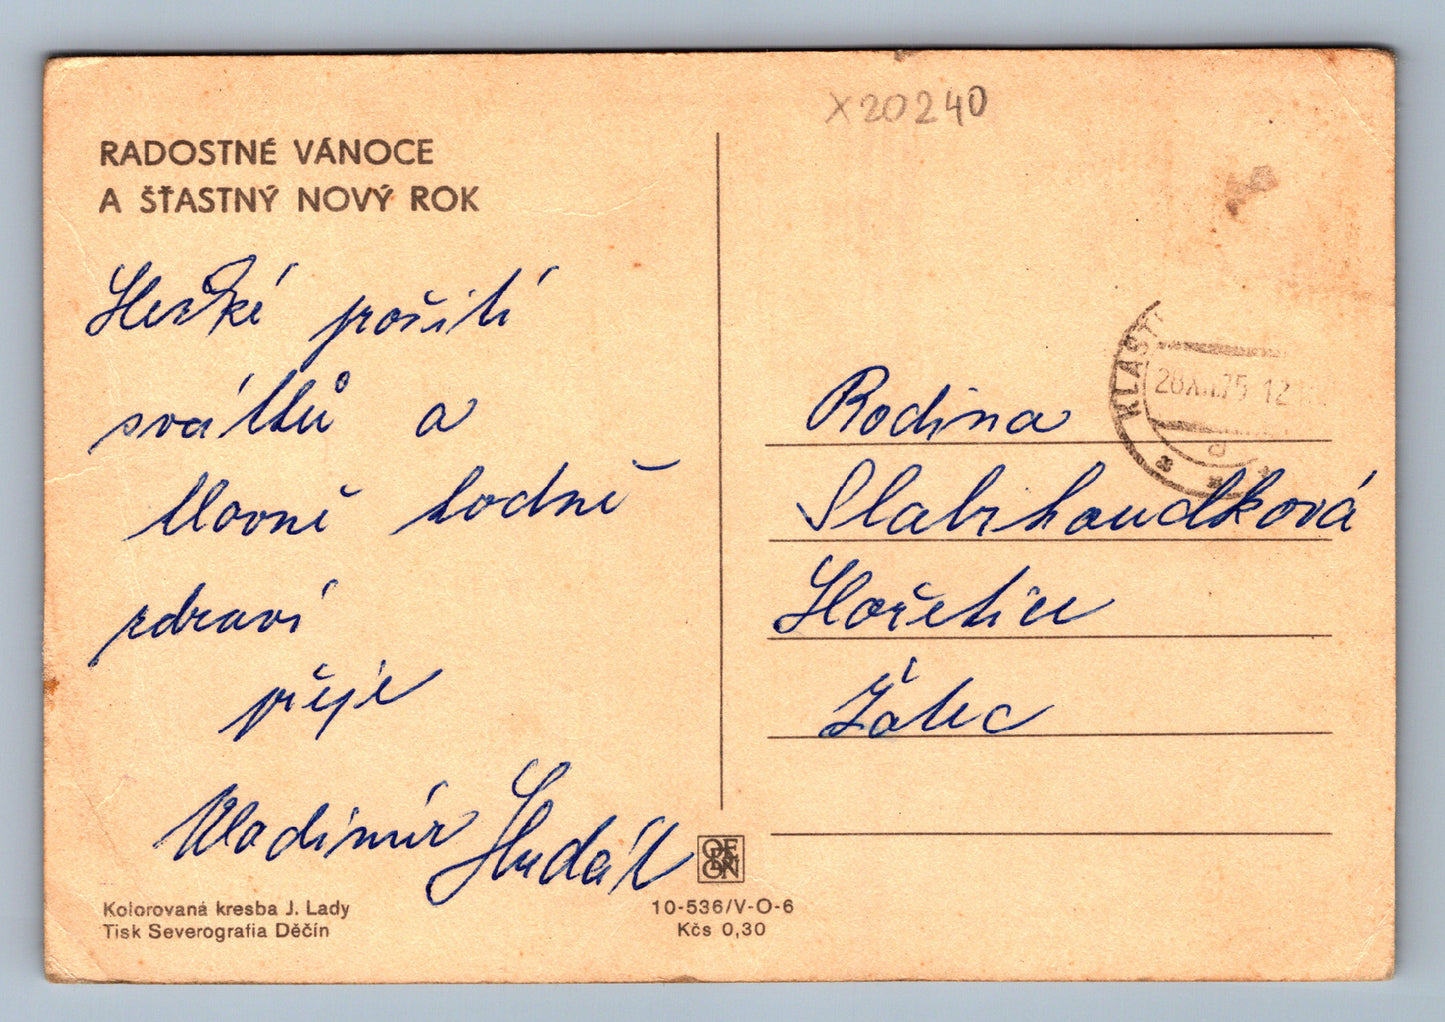 X20240
RADOSTNÉ VÁNOCE
A ŠŤASTNÝ NOVÝ ROK
Hezké prožití
svátků a
hlavně hodně
zdraví
přeje
Vladimír Hudák
Kolorovaná kresba J. Lady
Tisk Severografia Děčín
ODEON
10-536/V-O-6
Kčs 0,30
KLÁŠT
28.XII.75-12
Rodina
Hořetice
Žatec